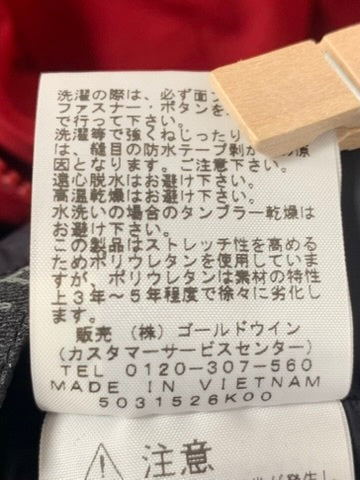 洗濯の際は、必ず面
ファスナー・ボタンを
で行って下さい。
洗濯等で強くねじったり
は、縫目の防水テープ剥が
因となります。ご注意下さい。
遠心脱水はお避け下さい。
高温乾燥はお避け下さい。
水洗いの場合のタンブラー乾燥は
お避け下さい。
この製品はストレッチ性を高める
ためポリウレタンを使用していま
すが、ポリウレタンは素材の特性
上3年〜5年程度で徐々に劣化し
ます。
販売 (株) ゴールドウイン
(カスタマーサービスセンター)
TEL 0120-307-560
MADE IN VIETNAM
5031526K00
注意